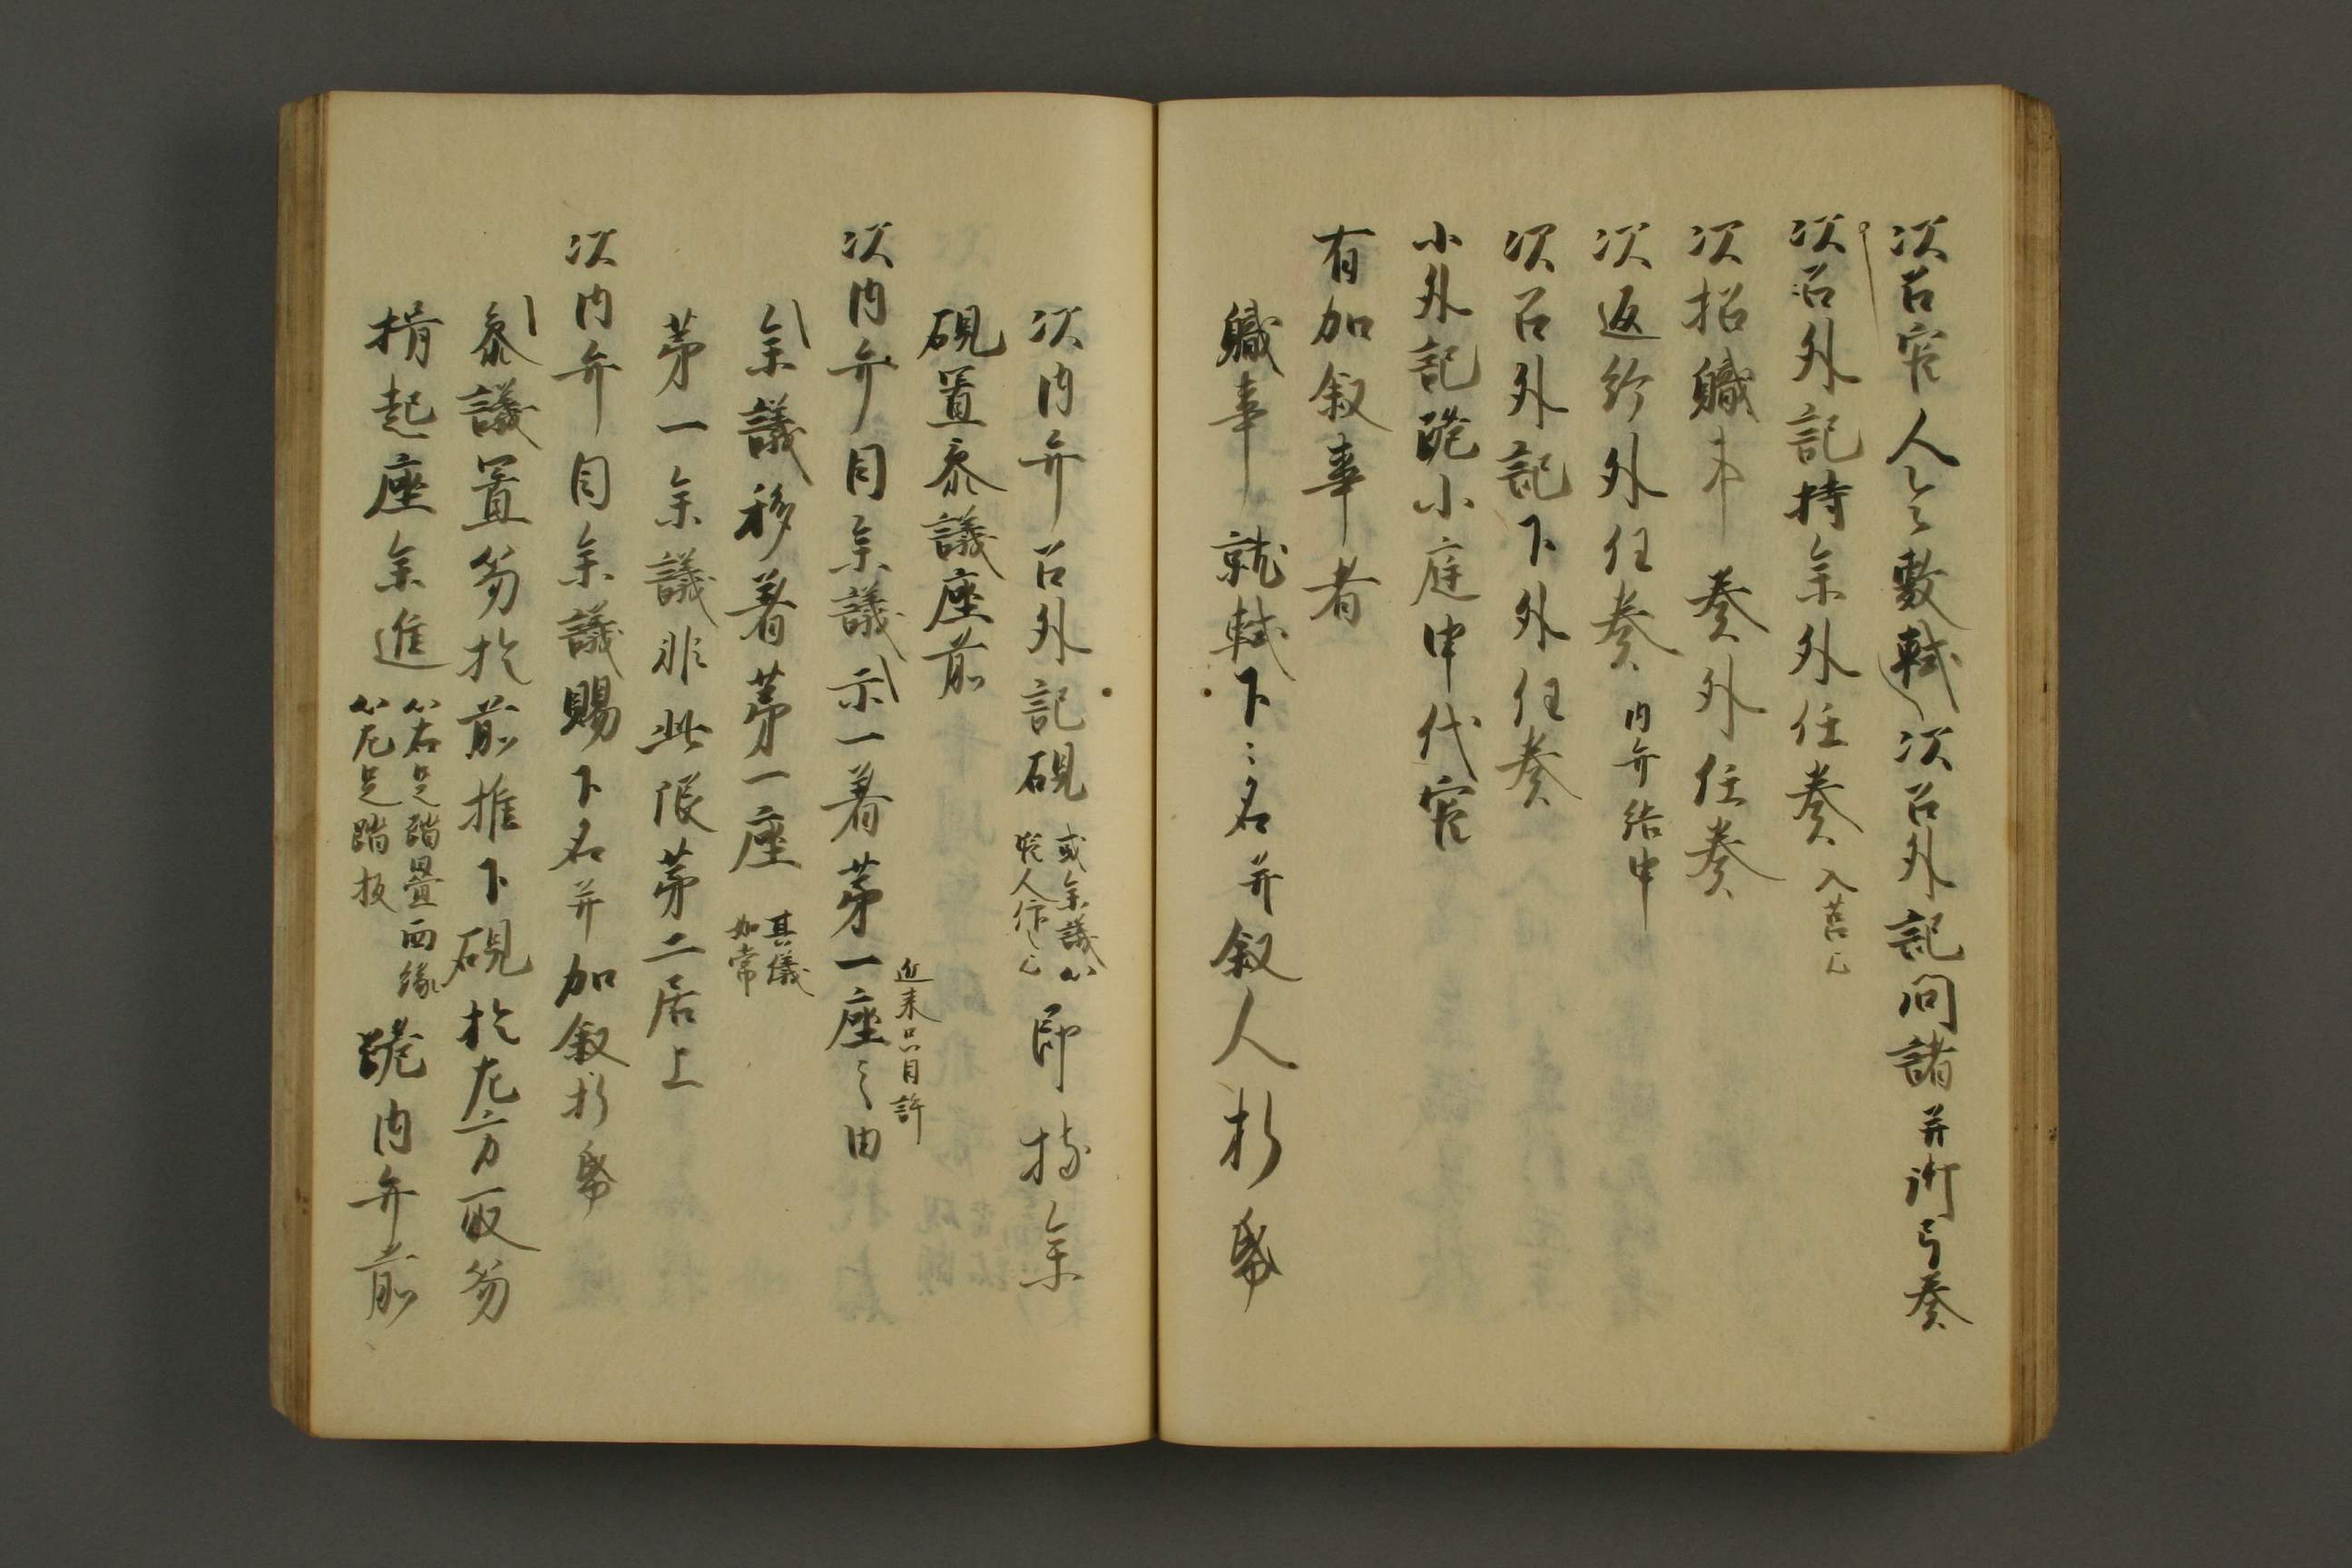 次召官人令敷軾次召外記問諸并所司奏
次召外記持参外任奏入筥
次招職事奏外任奏
次返給外任奏内弁結申
次召外記下外任奏
小外記跪小庭申代官
有加叙事者
職事就軾下〻名并叙人折帋
次内弁召外記硯或参議以
官人作 即持参
硯置参議座前
次内弁目参議示一著第一座之由近来只目許
参議移着第一座其儀
如常
第一参議非此限第二居上
次内弁目参議賜下名并加叙折帋
参議置笏於前推下硯於左方取笏
揖起座参進以右足踏畳西縁
以左足踏板 跪内弁前